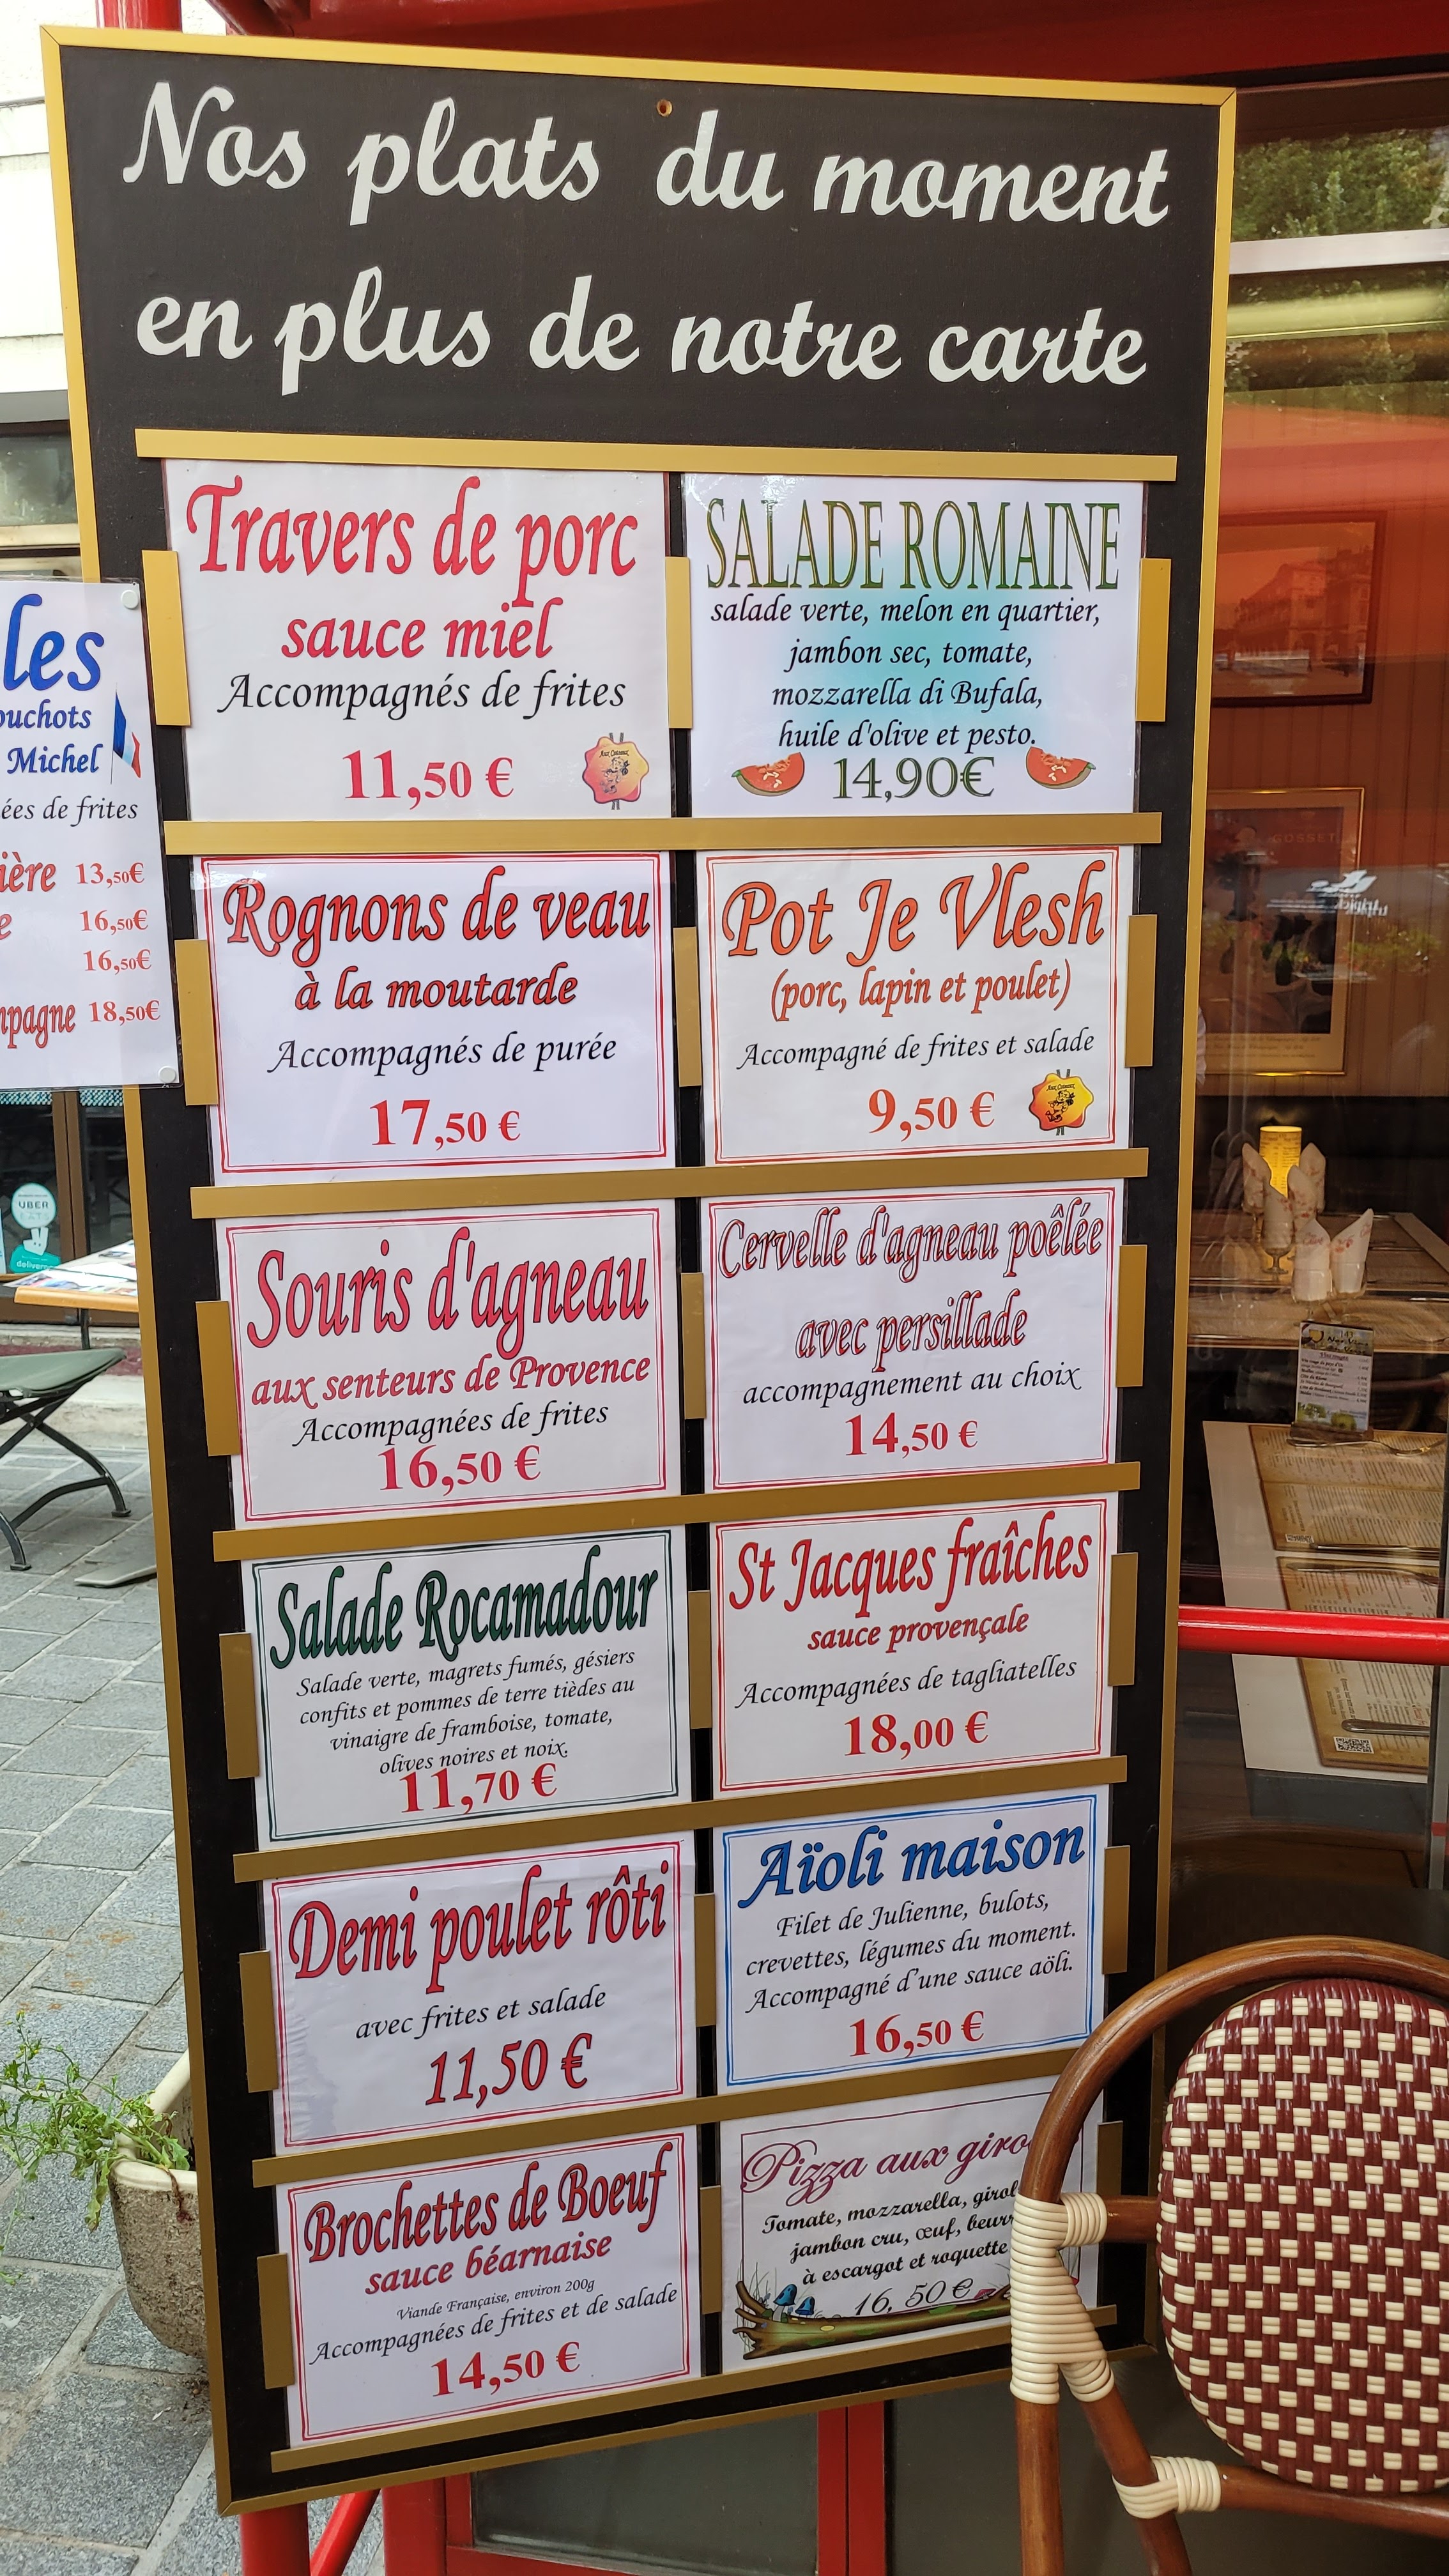 Nos plats du moment
en plus de notre carte
Travers de porc
sauce miel
Accompagnés de frites
11,50 €
SALADE ROMAINE
salade verte, melon en quartier,
jambon sec, tomate,
mozzarella di Bufala,
huile d'olive et pesto.
14,90€
Rognons de veau
à la moutarde
Accompagnés de purée
17,50 €
Pot Je Vlesh
(porc, lapin et poulet)
Accompagné de frites et salade
9,50 €
Souris d'agneau
aux senteurs de Provence
Accompagnées de frites
16,50 €
Cervelle d'agneau poêlée
avec persillade
accompagnement au choix
14,50 €
Salade Rocamadour
Salade verte, magrets fumés, gésiers
confits et pommes de terre tièdes au
vinaigre de framboise, tomate,
olives noires et noix.
11,70 €
St Jacques fraîches
sauce provençale
Accompagnées de tagliatelles
18,00 €
Demi poulet rôti
avec frites et salade
11,50 €
Aïoli maison
Filet de Julienne, bulots,
crevettes, légumes du moment.
Accompagné d'une sauce aöli.
16,50 €
Brochettes de Boeuf
sauce béarnaise
Viande Française, environ 200g
Accompagnées de frites et de salade
14,50 €
Pizza aux giro
Tomate, mozzarella, girol
jambon cru, œuf, beurr
à escargot et roquette
16, 50 €
les
ouchots
Michel
ées de frites
ière 13,50€
e 16,50€
16,50€
mpagne 18,50€
UBER
EATS
GOSSET